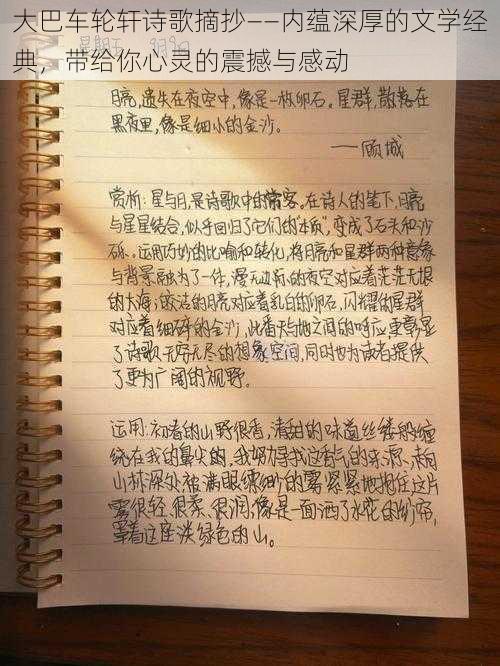 大巴车轮轩诗歌摘抄——内蕴深厚的文学经
典，带给你心灵的震撼与感动
星期五 9月9日
月亮,遗失在夜空中,像是一枚卵石。星群,散落在
黑夜里,像是细小的金沙。
——顾城
赏析:星与月,是诗歌中的常客。在诗人的笔下,月亮
与星星结合,似乎回归了它们的“本质”,变成了石头和沙
砾。运用巧妙的比喻和转化,将月亮和星群两种意象
与背景融为了一体,漫无边际的夜空对应着茫茫无垠
的大海;皎洁的月亮对应着乳白的卵石,闪耀的星群
对应着细碎的金沙,此番天与地之间的呼应更彰显
了诗歌无穷无尽的想象空间,同时也为读者提供
了更为广阔的视野。
运用:初春的山野很香,清甜的味道丝缕般缠
绕在我的鼻尖的,我努力寻找这香气的来源,来自
山林深处 满眼 细的雾紧紧地抱住这片
雾很轻、很柔、很润,像是一面洒了水花的纱帘,
罩着这座淡绿色的山。